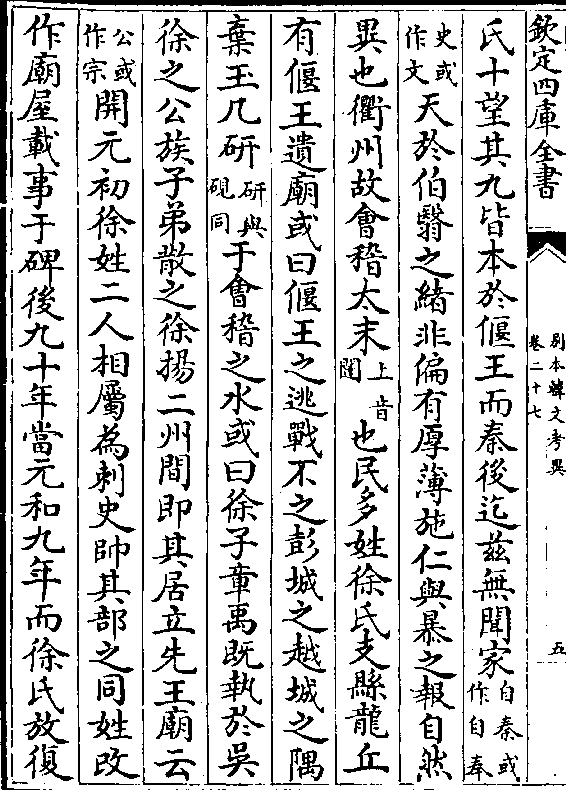 欽定四庫全書
別本韓文考異
卷二十七
五
氏十望其九皆本於偃王而秦後迄茲無聞家自秦或作自奉
史或作文天於伯翳之緒非偏有厚薄施仁與暴之報自然
異也衢州故會稽太末上音闥也民多姓徐氏支縣龍丘
有偃王遺廟或曰偃王之逃戰不之彭城之越城之隅
棄玉几研研與硯同于會稽之水或曰徐子章禹既執於吳
徐之公族子弟散之徐揚二州間即其居立先王廟云
公或作宗開元初徐姓二人相屬為刺史帥其部之同姓改
作廟屋載事于碑後九十年當元和九年而徐氏放復